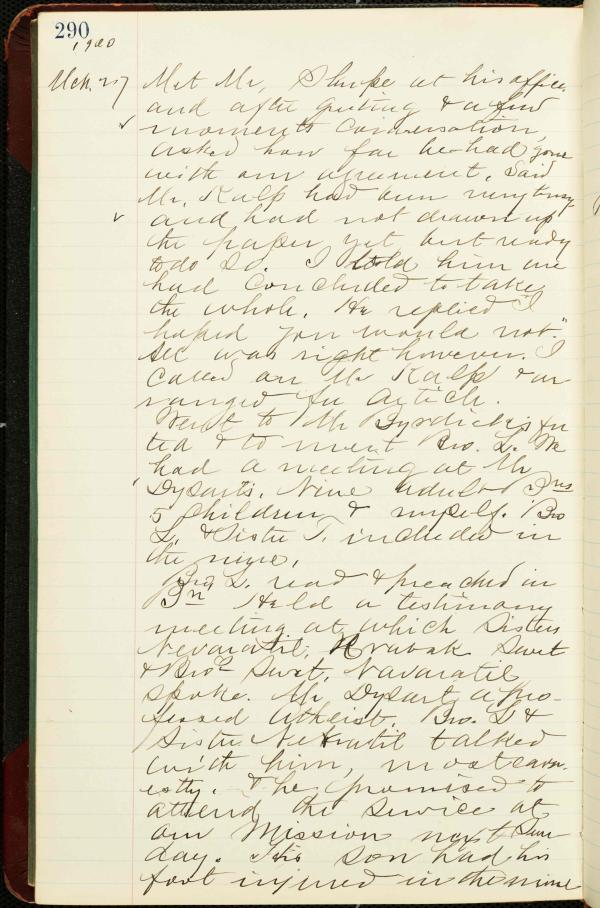 290
1900
Mch. 27 Met Mr. Shupe at his office
and after greeting & a few
moments conversation,
asked how far he had gone
with our agreement. Said
Mr. Kalp had been very busy
and had not drawn up
the paper yet but ready
to do so. I told him we
had concluded to take
the whole. He replied "I
hoped you would not."
All was right however. I
called on Mr Kalp & ar-
ranged for article.
Went to Mr Byrdick's for
tea & to meet Bro. L. We
had a meeting at Mr
Dysarts. Nine adult
5 children & myself. Bro
L. & Sister T. included in
the nine.
Bro L. read & preached in
Bn Held a testimony
meeting at which Sisters
Nevaratil, Hrabak Swet
& Bros Swet, Navaratil
spoke. Mr Dysart a pro-
fessed Atheist. Bro. L &
Sister Nevratil talked
with him, most earn-
estly. & he promised to
attend the service at
our Mission next Sun-
day. His son had his
foot injured in the mine